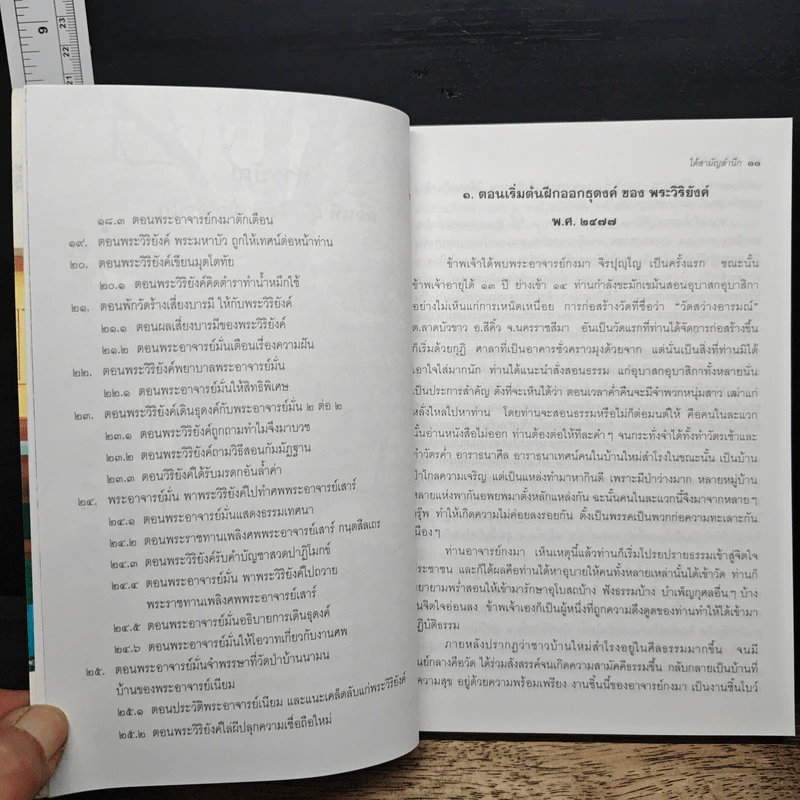 ๑๘.๓ ตอนพระอาจารย์กงมาตักเตือน
๑๙. ตอนพระวิริยังค์ พระมหาบัว ถูกให้เทศน์ต่อหน้าท่าน
๒๐. ตอนพระวิริยังค์เขียนมุตโตทัย
๒๐.๑ ตอนพระวิริยังค์คิดตำราทำน้ำหมึกใช้
๒๑. ตอนพักวัดร้างเสี่ยงบารมี ให้กับพระวิริยังค์
๒๑.๑ ตอนผลเสี่ยงบารมีของพระวิริยังค์
๒๑.๒ ตอนพระอาจารย์มั่นเตือนเรื่องความฝัน
๒๒. ตอนพระวิริยังค์พยาบาลพระอาจารย์มั่น
๒๒.๑ ตอนพระอาจารย์มั่นให้สิทธิพิเศษ
๒๓. ตอนพระวิริยังค์เดินธุดงค์กับพระอาจารย์มั่น ๒ ต่อ ๒
๒๓.๑ ตอนพระวิริยังค์ถูกถามทำไมจึงมาบวช
๒๓.๒ ตอนพระวิริยังค์ถามวิธีสอนกัมมัฏฐาน
๒๓.๓ ตอนวิริยังค์ได้รับมรดกอันล้ำค่า
๒๔. พระอาจารย์มั่น พาพระวิริยังค์ไปทำศพพระอาจารย์เสาร์
๒๔.๑ ตอนพระอาจารย์มั่นแสดงธรรมเทศนา
๒๔.๒ ตอนพระราชทานเพลิงศพพระอาจารย์เสาร์ กนฺตสีลเถร
๒๔.๓ ตอนพระวิริยังค์รับคำบัญชาสวดปาฏิโมกข์
๒๔.๔ ตอนพระอาจารย์มั่น พาพระวิริยังค์ไปถวาย
พระราชทานเพลิงศพพระอาจารย์เสาร์
๒๔.๕ ตอนพระอาจารย์มั่นอธิบายการเดินธุดงค์
๒๔.๖ ตอนพระอาจารย์มั่นให้โอวาทเกี่ยวกับงานศพ
๒๕. ตอนพระอาจารย์มั่นจำพรรษาที่วัดป่าบ้านนามน
บ้านของพระอาจารย์เนียม
๒๕.๑ ตอนประวัติพระอาจารย์เนียม และแนะเคล็ดลับแก่พระวิริยังค์
๒๕.๒ ตอนพระวิริยังค์ไล่ผีปลุกความเชื่อถือใหม่
ใต้สามัญสำนึก ๑๑
๑. ตอนเริ่มต้นฝึกออกธุดงค์ ของ พระวิริยังค์
พ.ศ. ๒๔๗๗
ข้าพเจ้าได้พบพระอาจารย์กงมา จิรปุญฺโญ เป็นครั้งแรก ขณะนั้น
ข้าพเจ้าอายุได้ ๑๓ ปี ย่างเข้า ๑๔ ท่านกำลังขะมักเขม้นสอนอุบาสกอุบาสิกา
อย่างไม่เห็นแก่การเหนื่อย การก่อสร้างวัดที่ชื่อว่า "วัดสว่างอารมณ์"
ต.ลาดบัวขาว อ.สีคิ้ว จ.นครราชสีมา อันเป็นวัดแรกที่ท่านได้จัดการก่อสร้างขึ้น
ก็เริ่มด้วยกุฏิ ศาลาที่เป็นอาคารชั่วคราวมุงด้วยจาก แต่นั่นเป็นสิ่งที่ท่านมิได้
เอาใจใส่มากนัก ท่านได้แนะนำสั่งสอนธรรม แก่อุบาสกอุบาสิกาทั้งหลายนั้น
เป็นประการสำคัญ ดังที่จะเห็นได้ว่า ตอนเวลาค่ำคืนจะมีจำพวกหนุ่มสาว เฒ่าแก่
หลั่งไหลไปหาท่าน โดยท่านจะสอนธรรมหรือไม่ก็ต่อมนต์ให้ คือคนในละแวก
นั้นอ่านหนังสือไม่ออก ท่านต้องต่อให้ทีละคำๆ จนกระทั่งจำได้ทั้งทำวัตรเช้าและ
ทำวัตรค่ำ อาราธนาศีล อาราธนาเทศน์คนในบ้านใหม่สำโรงในขณะนั้น เป็นบ้าน
ป่าไกลความเจริญ แต่เป็นแหล่งทำมาหากินดี เพราะมีป่าว่างมาก หลายหมู่บ้าน
หลายแห่งพากันอพยพมาตั้งหลักแหล่งกัน ฉะนั้นคนในละแวกนี้จึงมาจากหลายๆ
กรุ๊พ ทำให้เกิดความไม่ค่อยลงรอยกัน ตั้งเป็นพรรคเป็นพวกก่อความทะเลาะกัน
เนืองๆ
ท่านอาจารย์กงมา เห็นเหตุนี้แล้วท่านก็เริ่มโปรยปรายธรรมเข้าสู่จิตใจ
ประชาชน และก็ได้ผลคือท่านได้หาอุบายให้คนทั้งหลายเหล่านั้นได้เข้าวัด ท่านก็
พยายามพร่ำสอนให้เข้ามารักษาอุโบสถบ้าง ฟังธรรมบ้าง บำเพ็ญกุศลอื่นๆ บ้าง
จนจิตใจอ่อนลง ข้าพเจ้าเองก็เป็นผู้หนึ่งที่ถูกความดึงดูดของท่านทำให้ได้เข้ามา
ปฏิบัติธรรม
ภายหลังปรากฏว่าชาวบ้านใหม่สำโรงอยู่ในศีลธรรมมากขึ้น จนมี
ศูนย์กลางคือวัด ได้ร่วมสังสรรค์จนเกิดความสามัคคีธรรมขึ้น กลับกลายเป็นบ้านที่
มีความสุข อยู่ด้วยความพร้อมเพรียง งานชิ้นนี้ของอาจารย์กงมา เป็นงานชิ้นโบว์